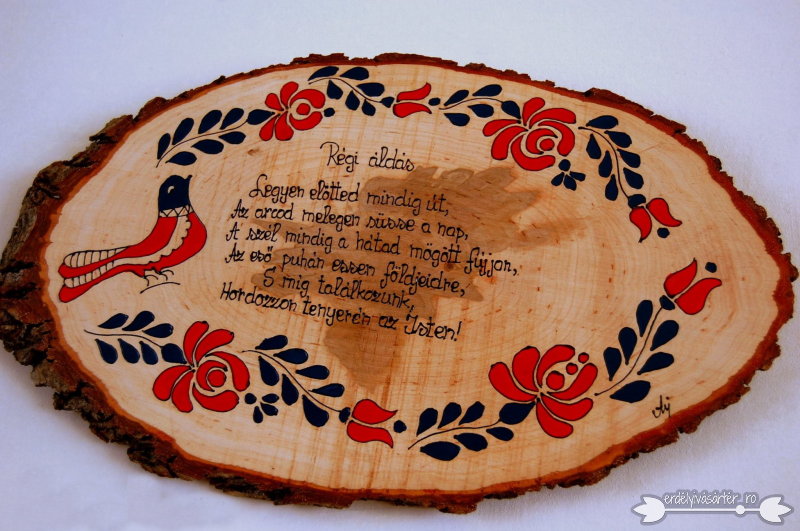 Régi áldás
Legyen előtted mindig út,
Az arcod melegen süsse a nap,
A szél mindig a hátad mögött fújjon,
Az eső puhán essen földjeidre,
S míg találkozunk,
Hordozzon tenyerén az Isten!
erdélyivásártér.ro